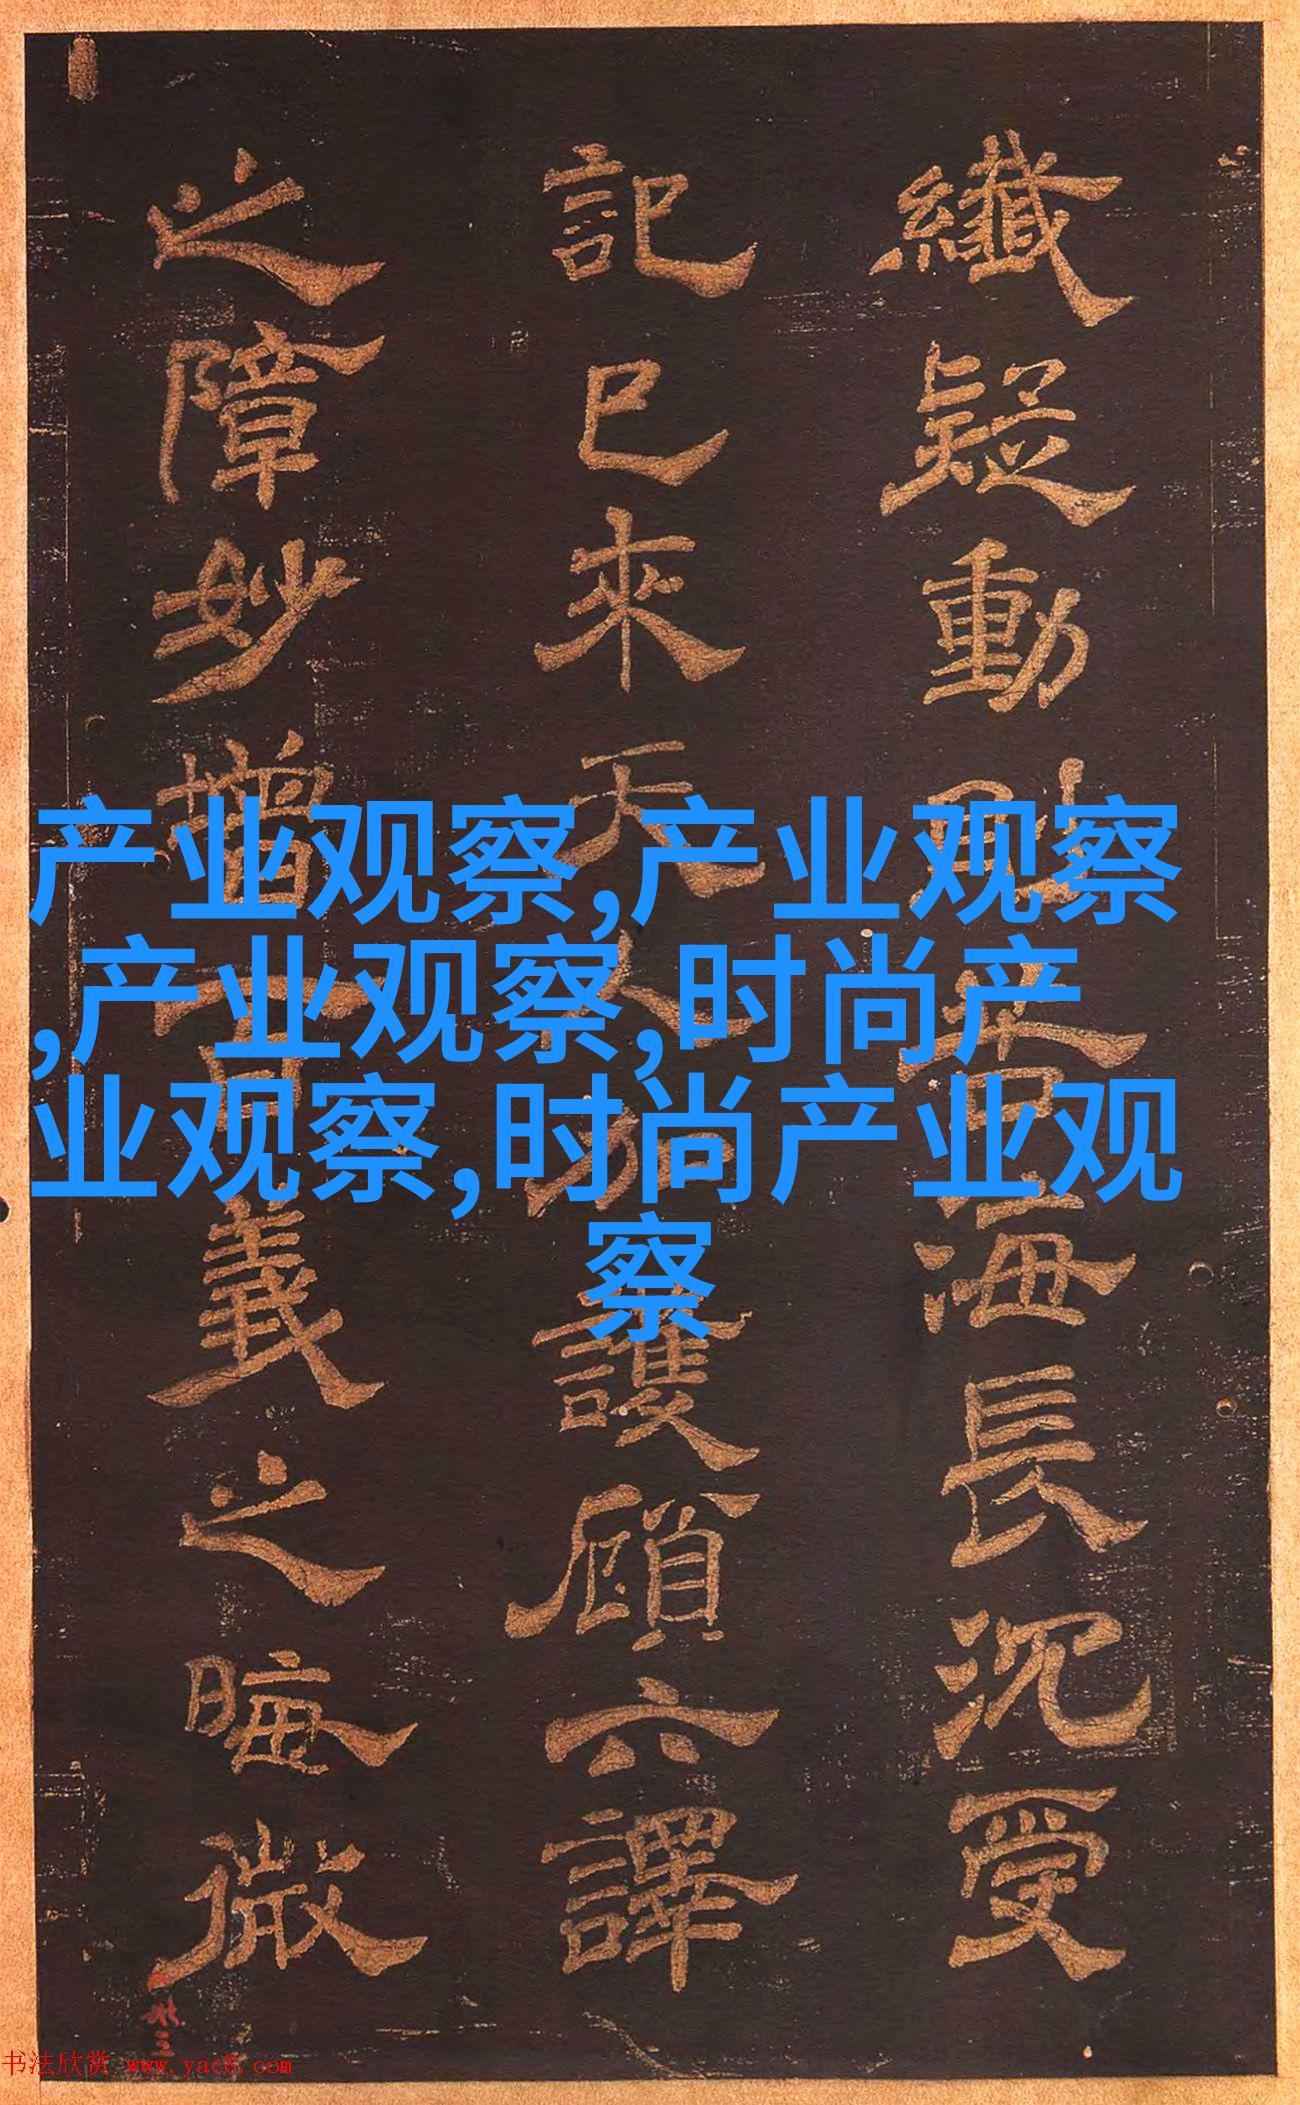 纖疑動
海長沉受
記已來天人
護顧六譯
之障妙增
義之晦微
产业观察,产业观察
,产业观察,时尚产
业观察,时尚产业观
察
书法欣赏 www.yac8.com